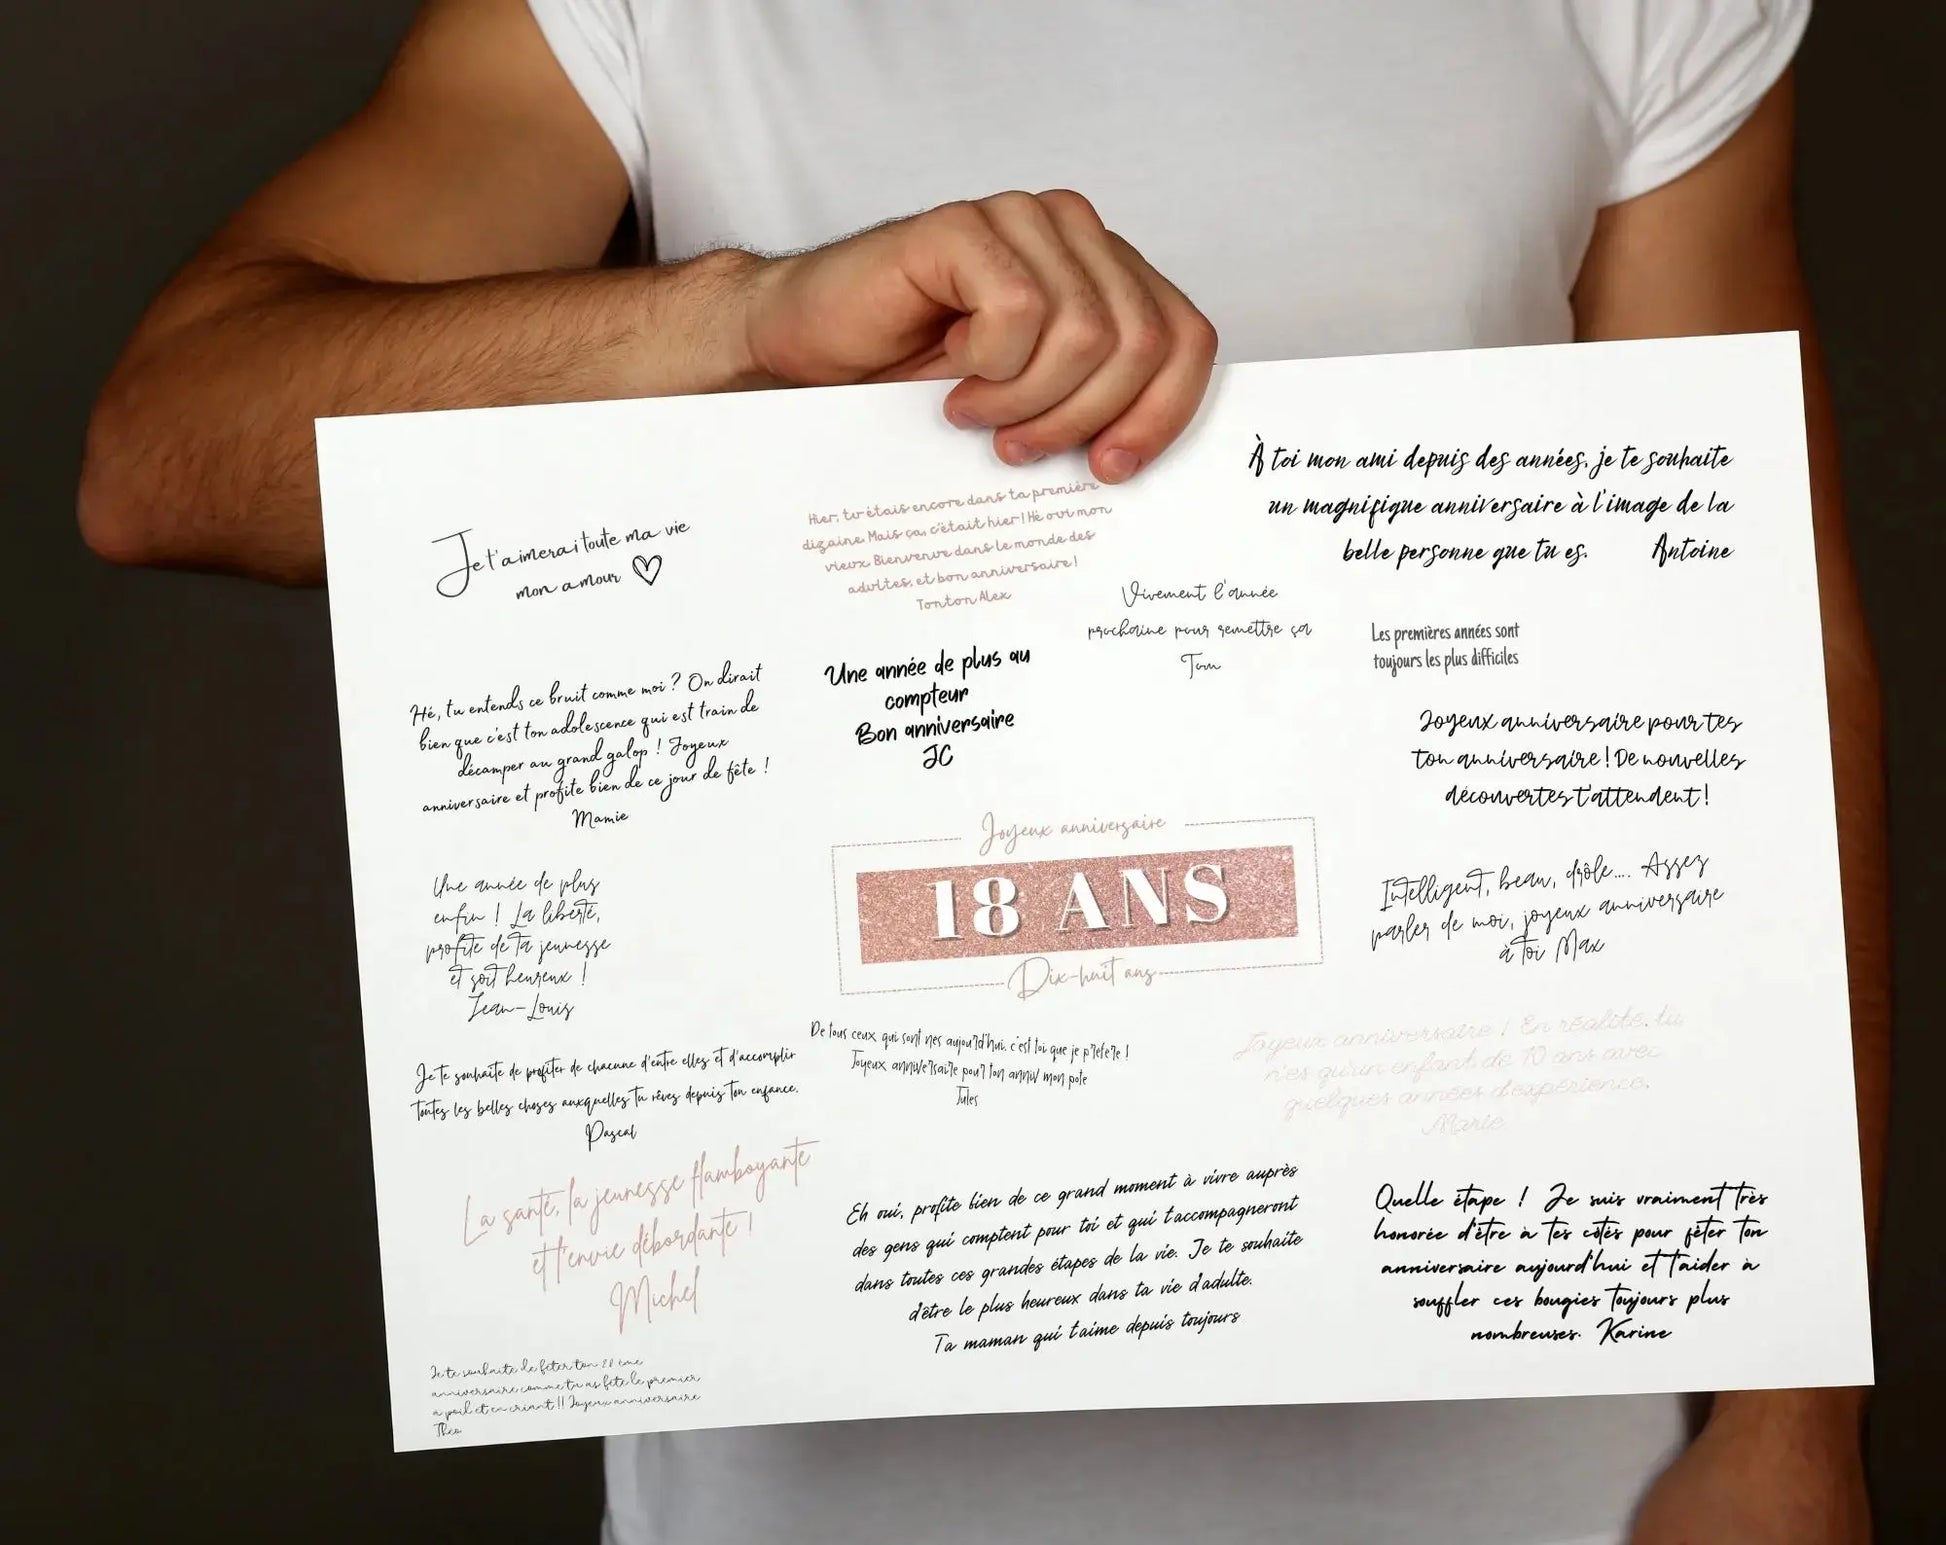 Je t'aimerai toute ma vie
mon amour
Hier, tu étais encore dans ta première
dizaine. Mais ça, c'était hier ! Hé oui mon
vieux. Bienvenue dans le monde des
adultes, et bon anniversaire !
Tonton Alex
À toi mon ami depuis des années, je te souhaite
un magnifique anniversaire à l'image de la
belle personne que tu es. Antoine
Vivement l'année
prochaine pour remettre ça
Tom
Les premières années sont
toujours les plus difficiles
Hé, tu entends ce bruit comme moi ? On dirait
bien que c'est ton adolescence qui est train de
décamper au grand galop ! Joyeux
anniversaire et profite bien de ce jour de fête !
Mamie
Une année de plus au
compteur
Bon anniversaire
JC
Joyeux anniversaire pour tes
ton anniversaire ! De nouvelles
découvertes t'attendent !
Joyeux anniversaire
18 ANS
Dix-huit ans
Une année de plus
enfin ! La liberté,
profite de ta jeunesse
et soit heureux !
Jean-Louis
Intelligent, beau, drôle.... Assez
parler de moi, joyeux anniversaire
à toi Max
De tous ceux qui sont nes aujourd'hui, c'est toi que je prefere !
Joyeux anniversaire pour ton anniv mon pote
Jules
Joyeux anniversaire ! En réalité, tu
n'es qu'un enfant de 10 ans avec
quelques années d'expérience.
Marie
Je te souhaite de profiter de chacune d'entre elles et d'accomplir
toutes les belles choses auxquelles tu rêves depuis ton enfance.
Pascal
La santé, la jeunesse flamboyante
et l'envie débordante !
Michel
Eh oui, profite bien de ce grand moment à vivre auprès
des gens qui comptent pour toi et qui t'accompagneront
dans toutes ces grandes étapes de la vie. Je te souhaite
d'être le plus heureux dans ta vie d'adulte.
Ta maman qui t'aime depuis toujours
Quelle étape ! Je suis vraiment très
honorée d'être à tes côtés pour fêter ton
anniversaire aujourd'hui et t'aider à
souffler ces bougies toujours plus
nombreuses. Karine
Je te souhaite de fêter ton ème
anniversaire comme tu as fêté le premier
a poil et en criant !! Joyeux anniversaire
Théo